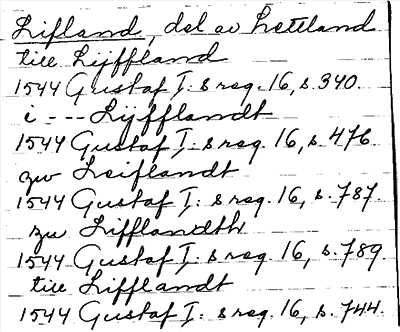 Lifland, del av Lettland
till Lijffland
1544 Gustaf I: s reg. 16, s. 340.
i --- Lijfflandt
1544 Gustaf I: s reg. 16, s. 476.
zw Leiflandt
1544 Gustaf I: s reg. 16, s. 787.
zu Lifflandth
1544 Gustaf I: s reg. 16, s. 789.
till Lifflandt
1544 Gustaf I: s reg. 16, s. 744.